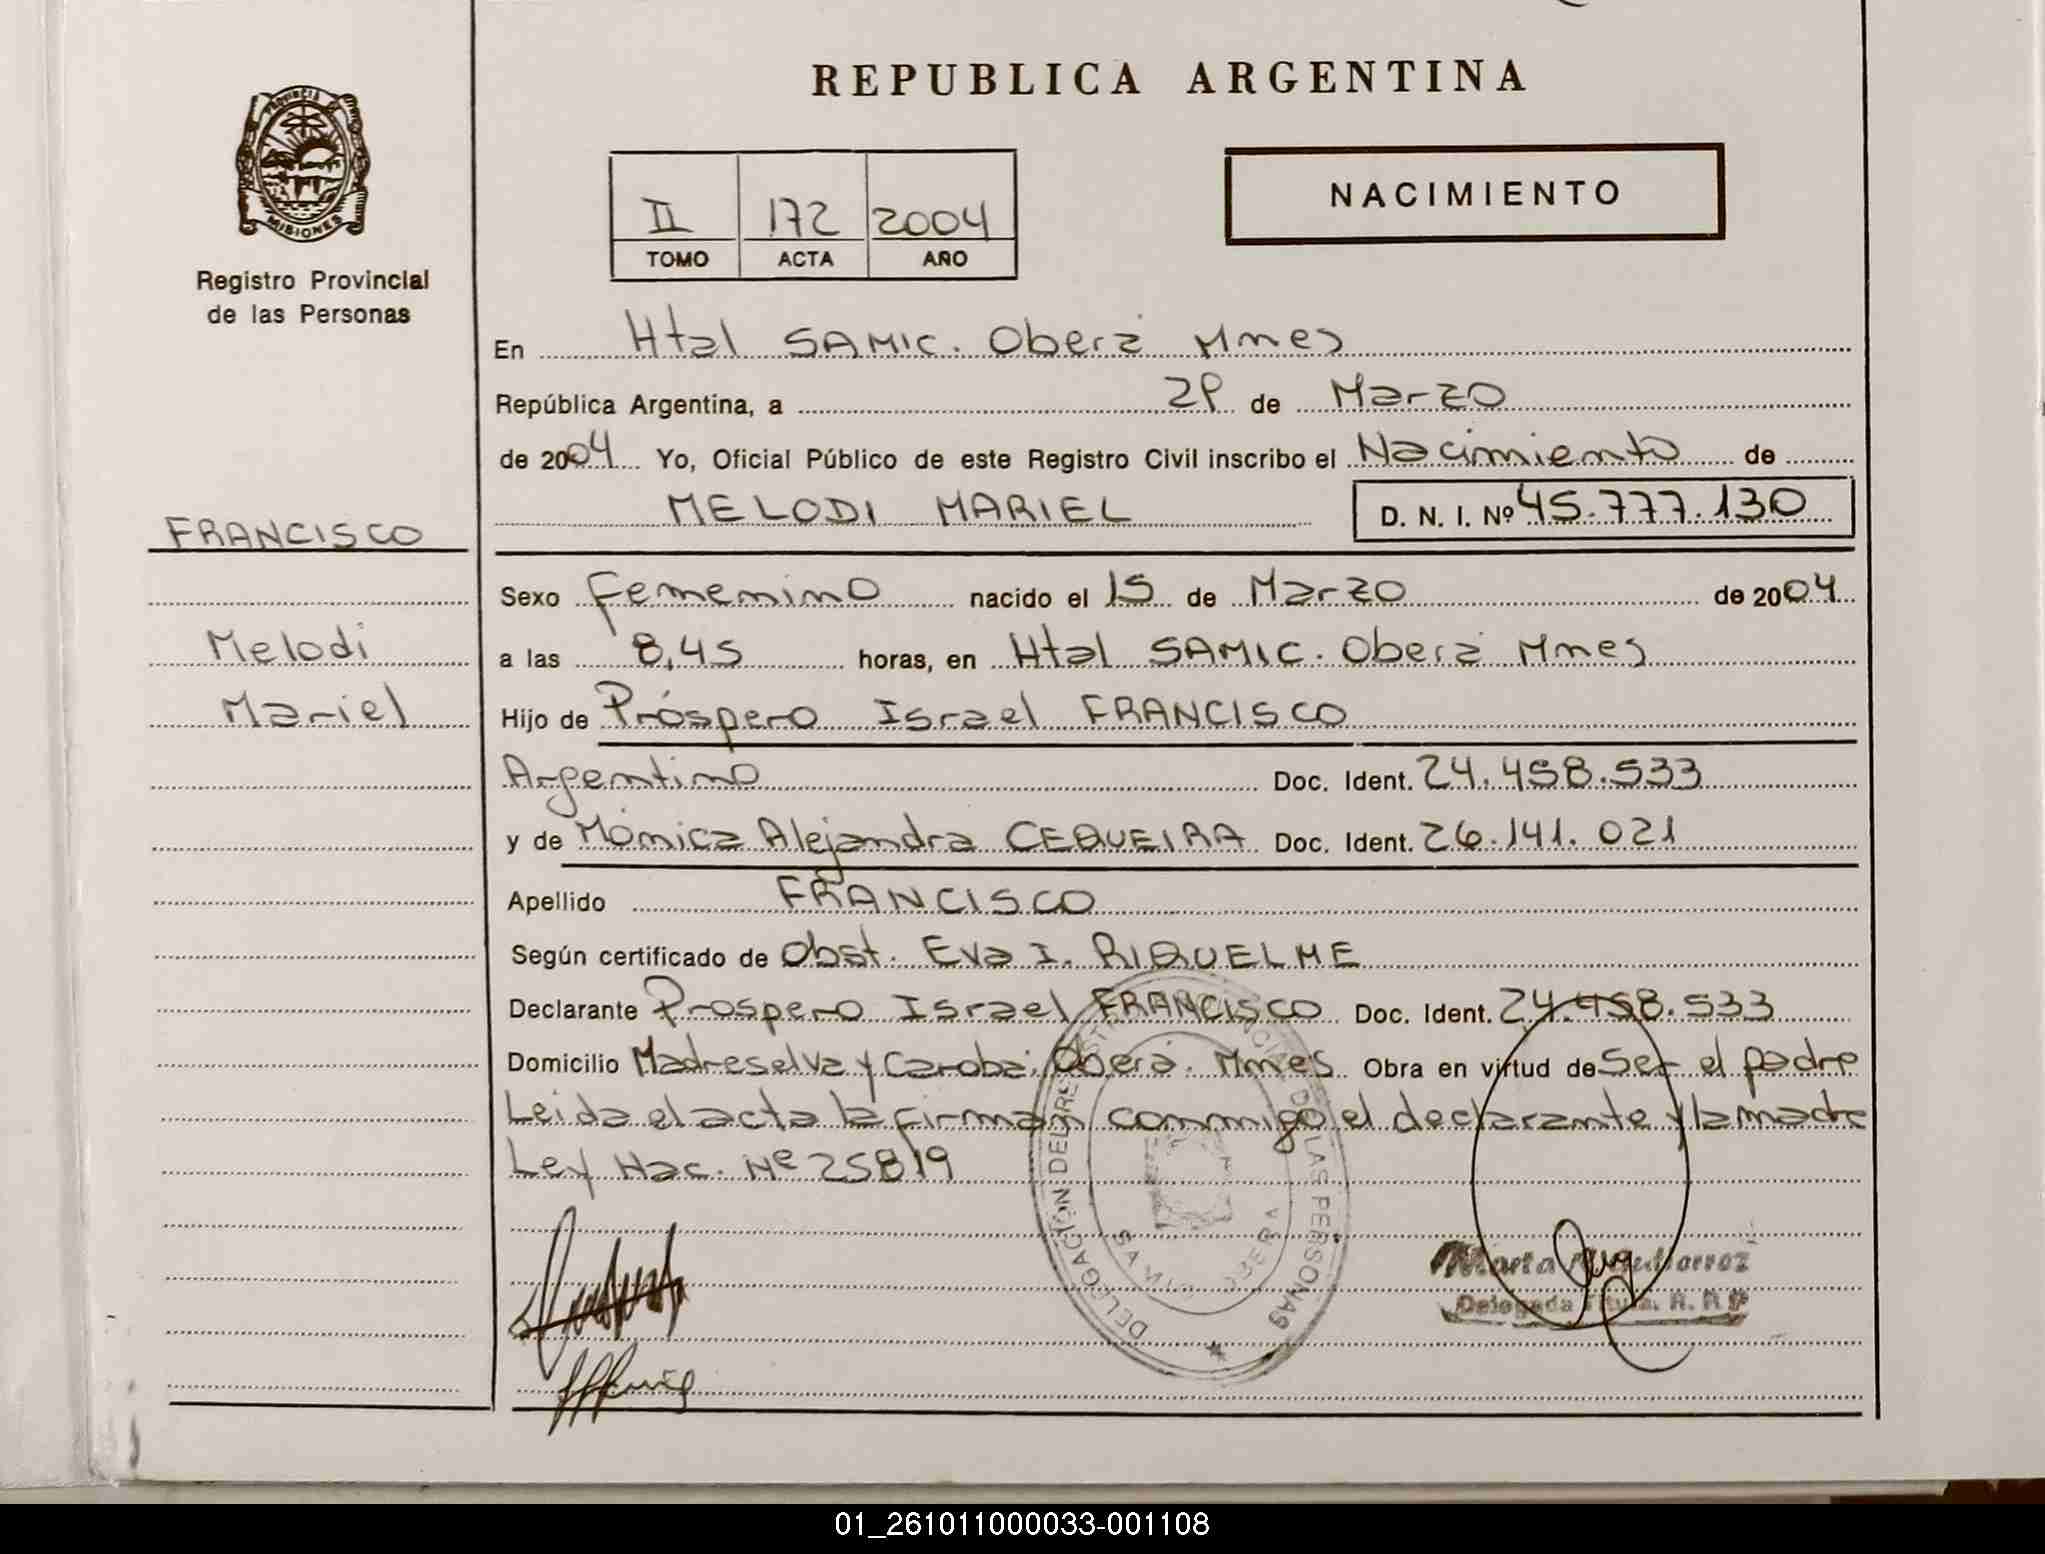 REPUBLICA ARGENTINA
PROVINCIA
MISIONES
Registro Provincial
de las Personas
II 172 2004
TOMO ACTA AÑO
NACIMIENTO
En Htal SAMIC. Oberá Mnes
República Argentina, a 29 de Marzo
de 2004 Yo, Oficial Público de este Registro Civil inscribo el Nacimiento de
MELODI MARIEL D. N. I. Nº 45.777.130
FRANCISCO
Melodi
Mariel
Sexo Femenino nacido el 15 de Marzo de 2004
a las 8,45 horas, en Htal SAMIC. Oberá Mnes
Hijo de Próspero Israel FRANCISCO
Argentino Doc. Ident. 24.458.533
y de Mónica Alejandra CEQUEIRA Doc. Ident. 26.141.021
Apellido FRANCISCO
Según certificado de Obst. Eva I. RIQUELME
Declarante Prospero Israel FRANCISCO Doc. Ident. 24.458.533
Domicilio Madreselva y Caroba; Oberá. Mnes Obra en virtud de Ser el padre
Leida el acta la firman conmigo el declarante y la madre
Ley Nac. Nº 25819
DELEGACION DEL REGISTRO PROVINCIAL DE LAS PERSONAS
OBERA
Marta Gutierrez
Delegada Titular R. P. P.
01_261011000033-001108